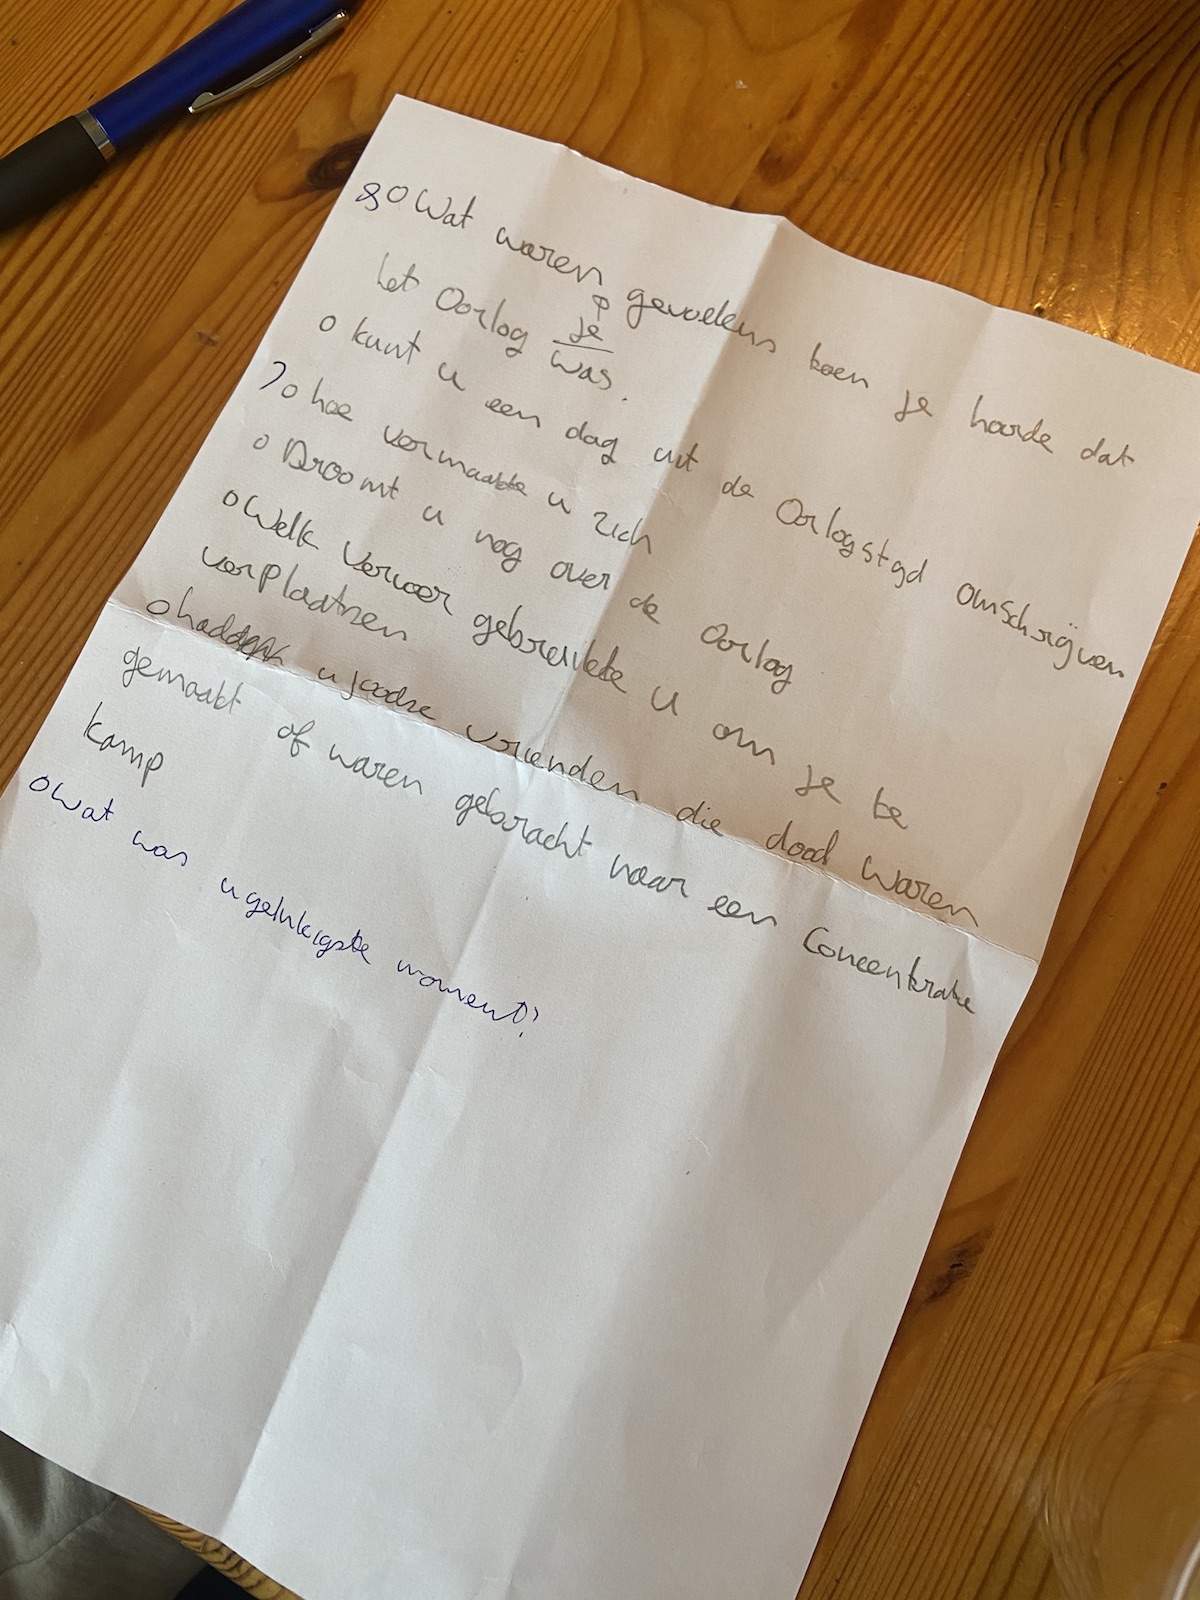 8 o Wat waren gevoelens toen je hoorde dat
je
het Oorlog was.
o kunt u een dag uit de Oorlogstyd omschrijven
7 o hoe vermaakte u zich
o Droomt u nog over de Oorlog
o Welk vervoer gebreukte u om je te
verplaatzen
o hadden u joodse vrienden die dood waren
gemaakt of waren gebracht naar een Concentratie
kamp
o wat was u gelukigste moment?